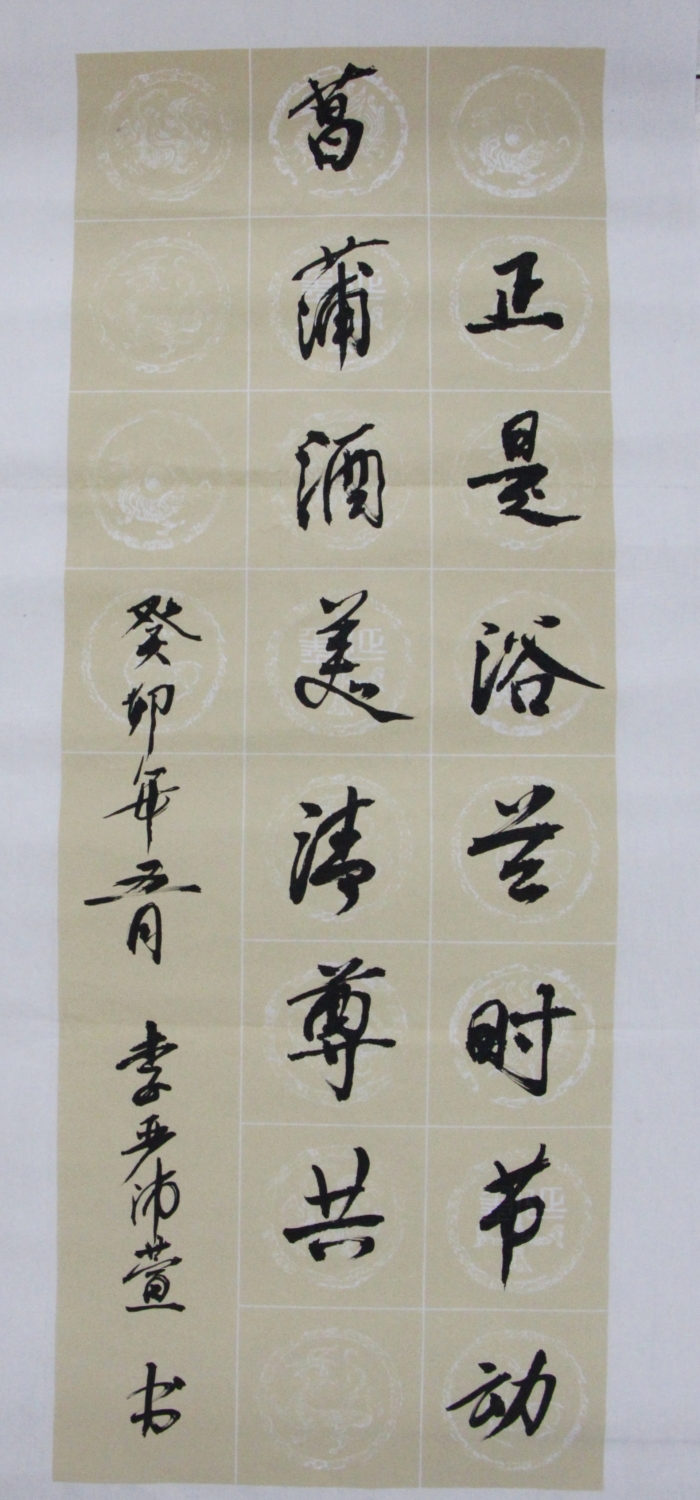 正是浴兰时节动
菖蒲酒美清尊共
癸卯年五月 李亚沛萱 书